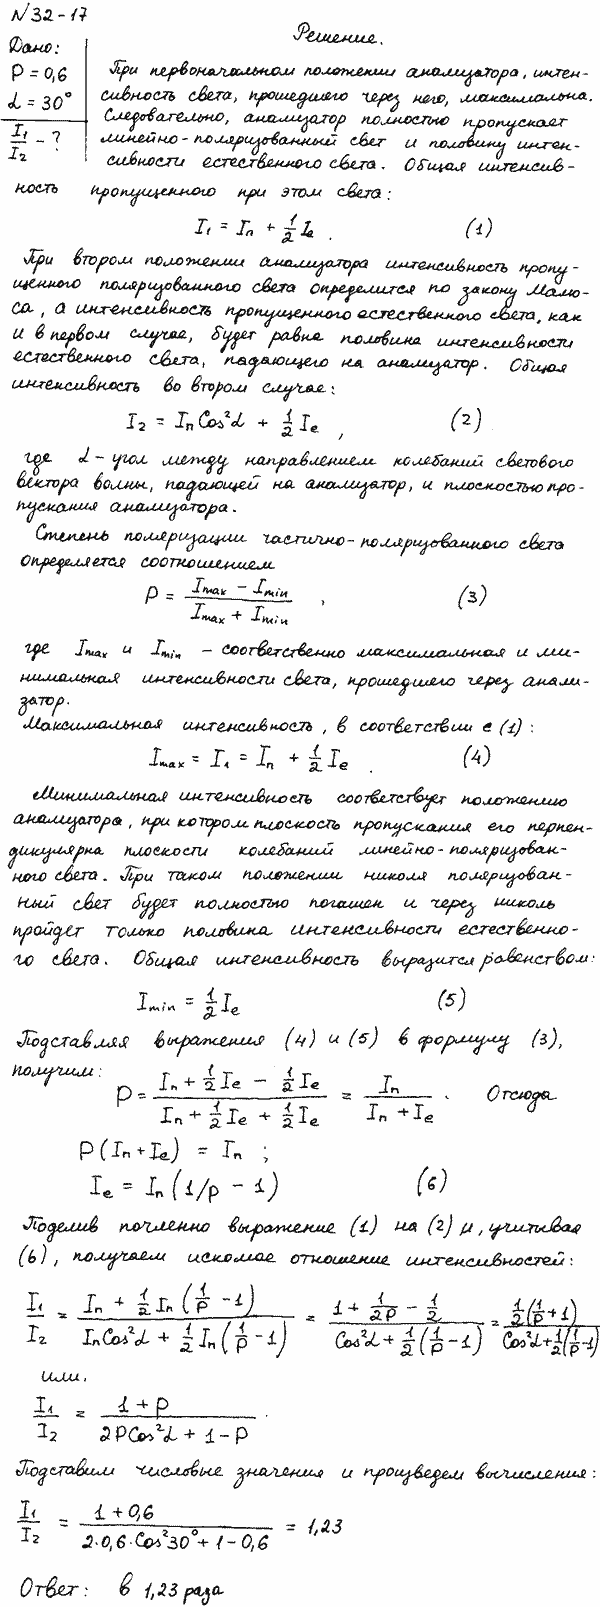 N 32-17
Решение.
Дано:
P = 0,6
α = 30°
I₁/I₂ - ?
При первоначальном положении анализатора, интен-
сивность света, прошедшего через него, максимальна.
Следовательно, анализатор полностью пропускает
линейно-поляризованный свет и половину интен-
сивности естественного света. Общая интенсив-
ность пропущенного при этом света:
I₁ = Iп + 1/2 Iе . (1)
При втором положении анализатора интенсивность пропу-
щенного поляризованного света определится по закону Малю-
са, а интенсивность пропущенного естественного света, как
и в первом случае, будет равна половина интенсивности
естественного света, падающего на анализатор. Общая
интенсивность во втором случае:
I₂ = Iп Cos²α + 1/2 Iе , (2)
где α - угол между направлением колебаний светового
вектора волны, падающей на анализатор, и плоскостью про-
пускания анализатора.
Степень поляризации частично-поляризованного света
определяется соотношением
P = (Imax - Imin)/(Imax + Imin) , (3)
где Imax и Imin - соответственно максимальная и ми-
нимальная интенсивности света, прошедшего через анали-
затор.
Максимальная интенсивность, в соответствии с (1):
Imax = I₁ = Iп + 1/2 Iе . (4)
Минимальная интенсивность соответствует положению
анализатора, при котором плоскость пропускания его перпен-
дикулярна плоскости колебаний линейно-поляризован-
ного света. При таком положении николя поляризован-
ный свет будет полностью погашен и через николь
пройдет только половина интенсивности естественно-
го света. Общая интенсивность выразится равенством:
Imin = 1/2 Iе (5)
Подставляя выражения (4) и (5) в формулу (3),
получим:
P = (Iп + 1/2 Iе - 1/2 Iе)/(Iп + 1/2 Iе + 1/2 Iе) = Iп/(Iп + Iе) . Отсюда
P(Iп + Iе) = Iп ;
Iе = Iп (1/P - 1) (6)
Поделив почленно выражение (1) на (2) и, учитывая
(6), получаем искомое отношение интенсивностей:
I₁/I₂ = (Iп + 1/2 Iп (1/P - 1))/(Iп Cos²α + 1/2 Iп (1/P - 1)) = (1 + 1/2P - 1/2)/(Cos²α + 1/2 (1/P - 1)) = (1/2 (1/P + 1))/(Cos²α + 1/2 (1/P - 1))
или,
I₁/I₂ = (1 + P)/(2P Cos²α + 1 - P) .
Подставим числовые значения и произведем вычисления:
I₁/I₂ = (1 + 0,6)/(2·0,6·Cos²30° + 1 - 0,6) = 1,23
Ответ: в 1,23 раза